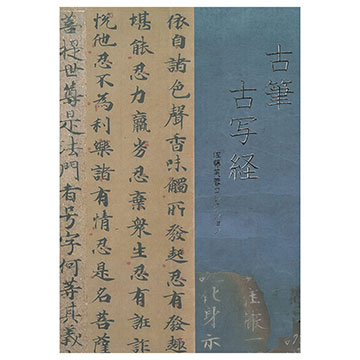 古筆
古写経
依自諸色聲香味觸所發起忍有發趣
堪能忍力羸劣忍棄衆生忍有誑詐
悅他忍不為利樂諸有情忍是名菩薩
菩提世尊是法門有号字何等真義
化身示